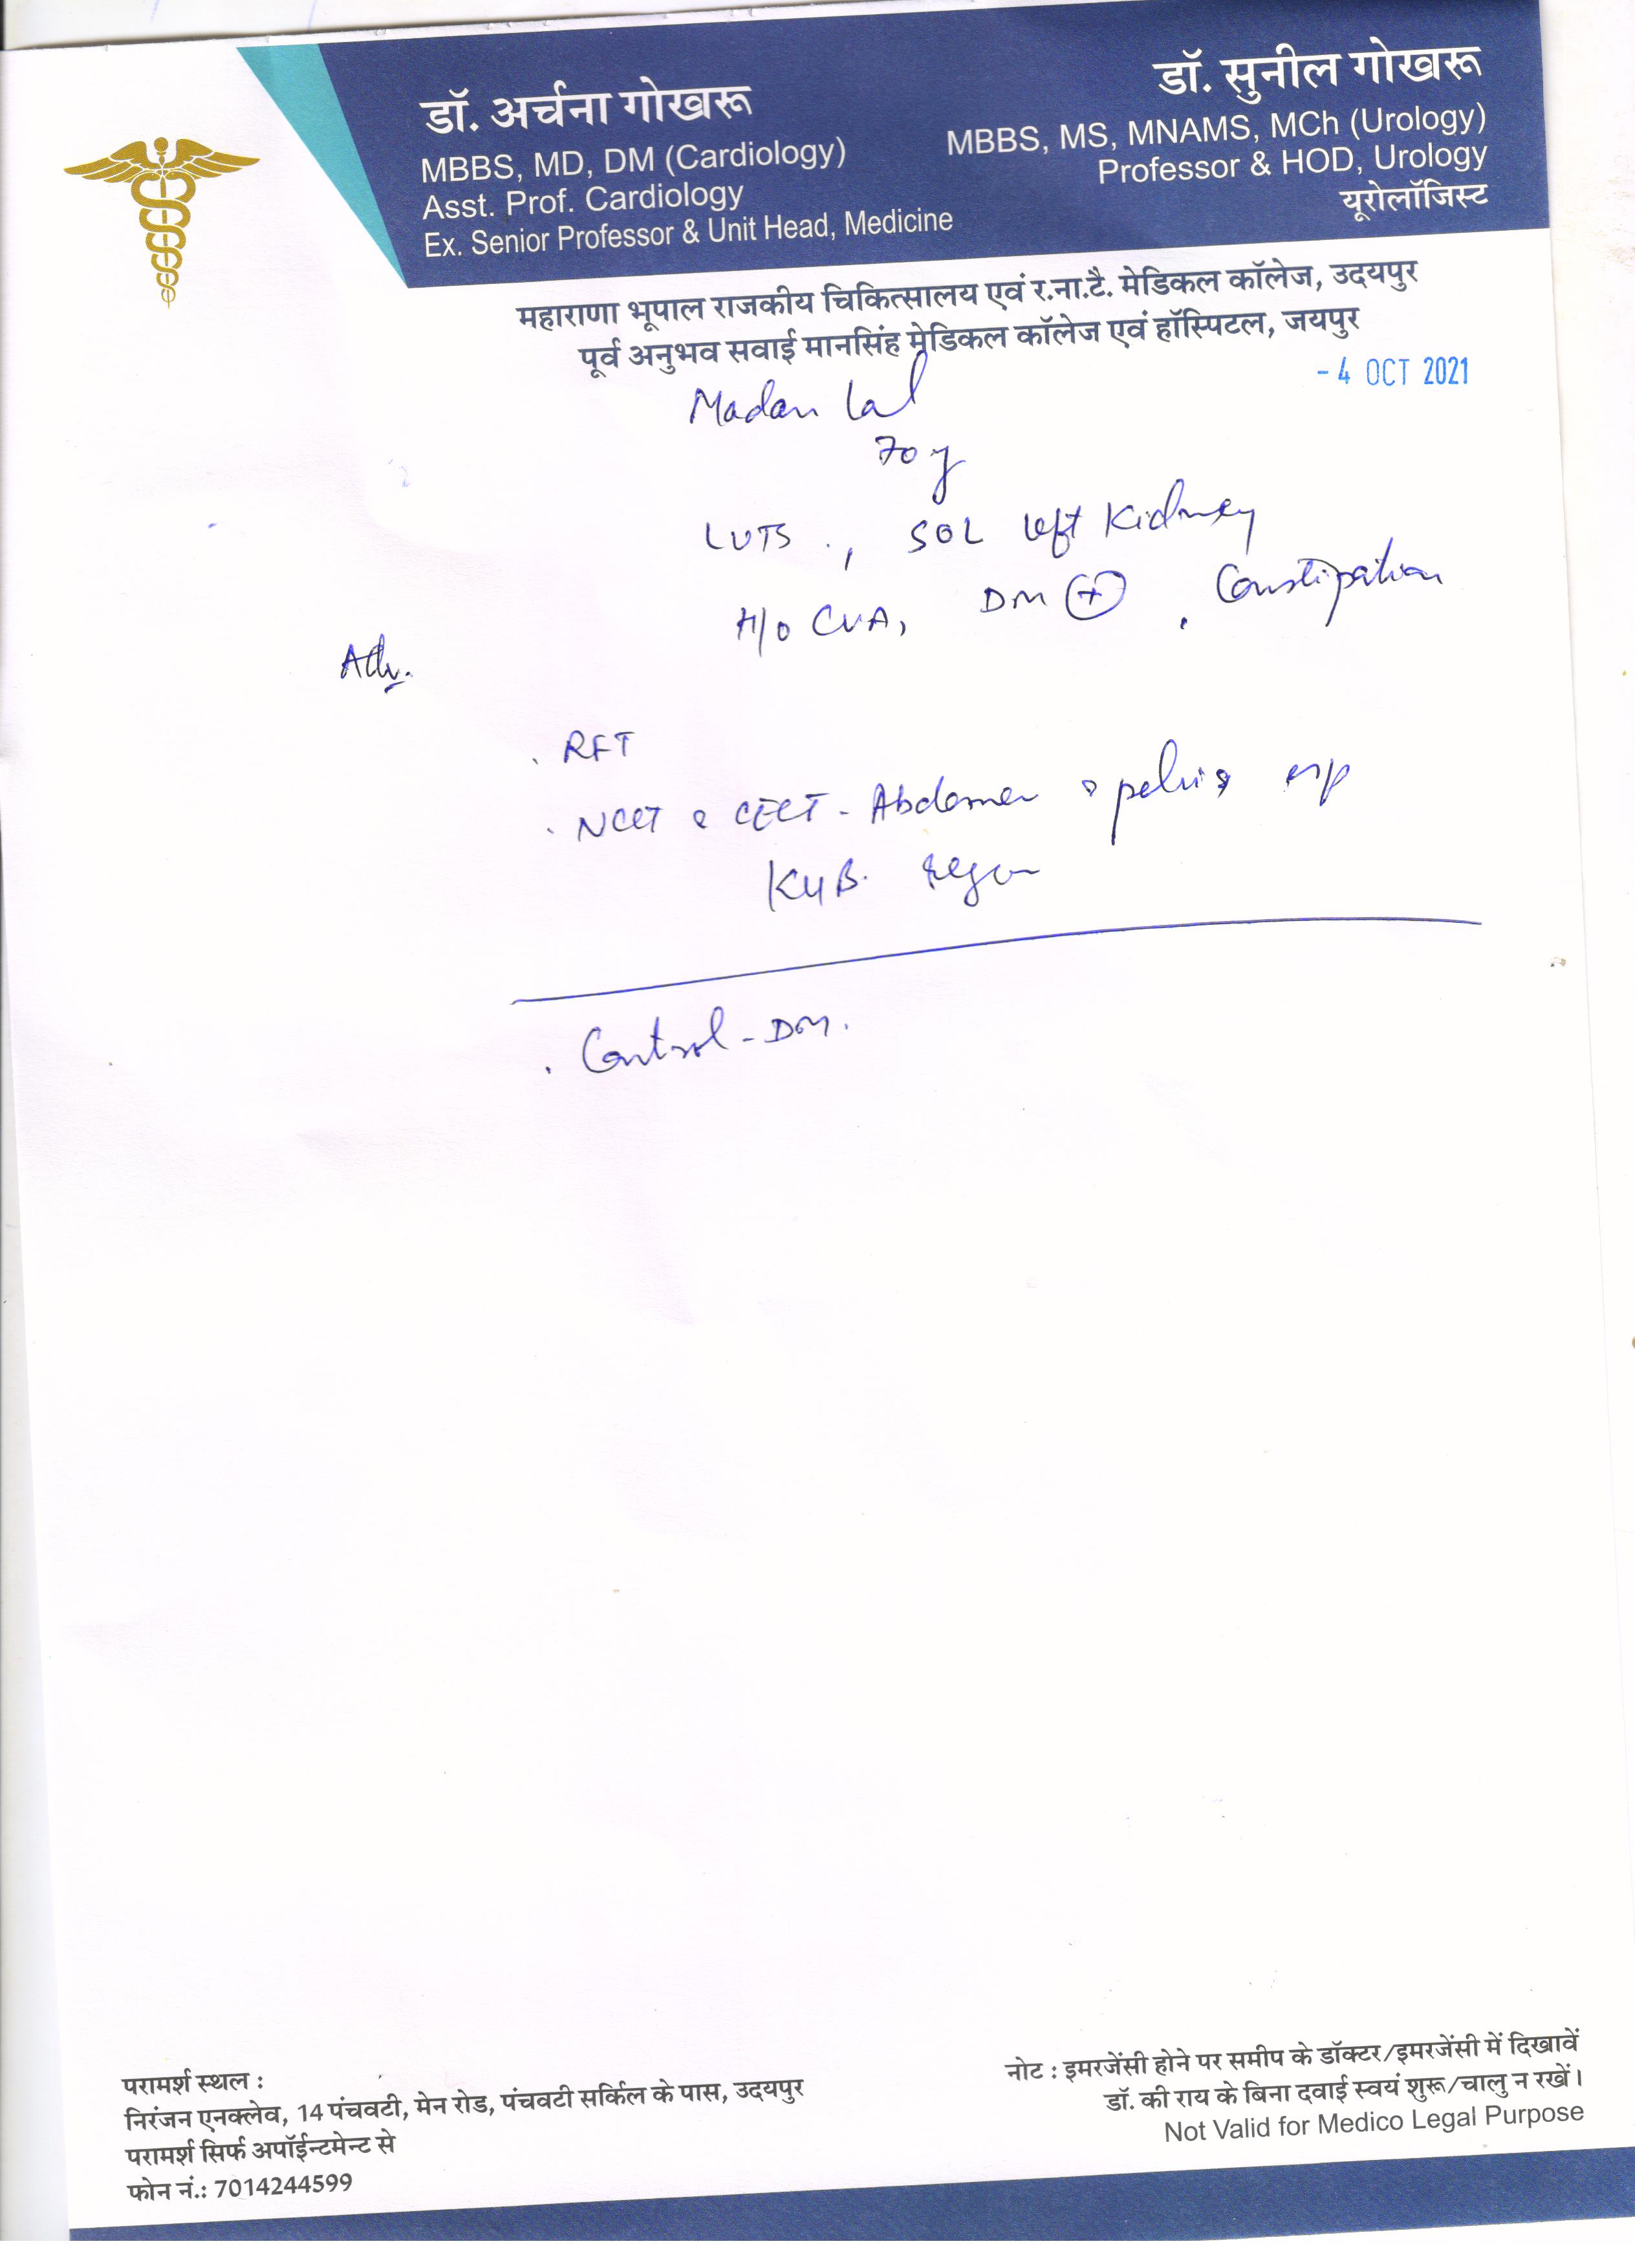 डॉ. अर्चना गोखरू
MBBS, MD, DM (Cardiology)
Asst. Prof. Cardiology
Ex. Senior Professor & Unit Head, Medicine
डॉ. सुनील गोखरू
MBBS, MS, MNAMS, MCh (Urology)
Professor & HOD, Urology
यूरोलॉजिस्ट
महाराणा भूपाल राजकीय चिकित्सालय एवं र.ना.टै. मेडिकल कॉलेज, उदयपुर
पूर्व अनुभव सवाई मानसिंह मेडिकल कॉलेज एवं हॉस्पिटल, जयपुर
- 4 OCT 2021
Madan Lal
70 y
LUTS, SOL left Kidney
H/o CVA, DM (+), Constipation
Adv.
. RFT
. NCCT & CECT - Abdomen & pelvis
KUB. region
. Control - DM.
परामर्श स्थल :
निरंजन एनक्लेव, 14 पंचवटी, मेन रोड, पंचवटी सर्किल के पास, उदयपुर
परामर्श सिर्फ अपॉईन्टमेन्ट से
फोन नं.: 7014244599
नोट : इमरजेंसी होने पर समीप के डॉक्टर/इमरजेंसी में दिखावें
डॉ. की राय के बिना दवाई स्वयं शुरू/चालु न रखें।
Not Valid for Medico Legal Purpose